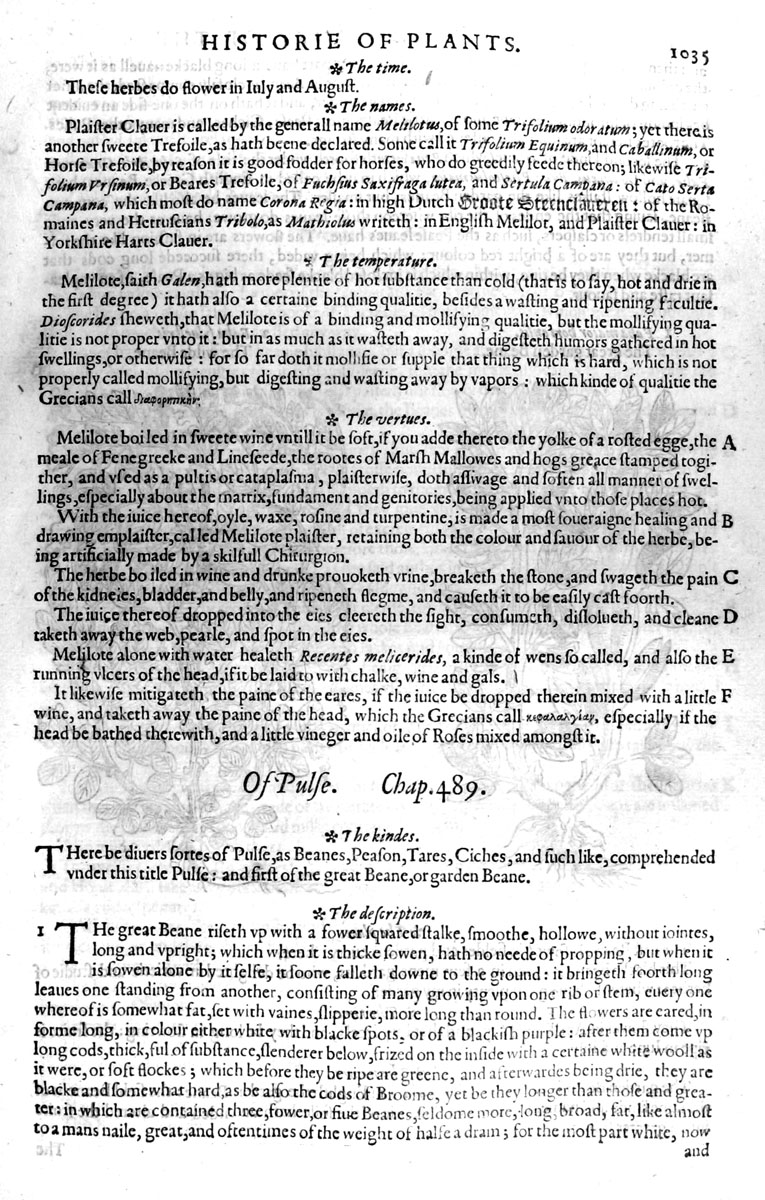 HISTORIE OF PLANTS.
1035
✻ The time.
Theſe herbes do flower in Iuly and Auguſt.
✻ The names.
Plaiſter Clauer is called by the generall name Melilotus, of ſome Trifolium odoratum; yet there is
another ſweete Trefoile, as hath beene declared. Some call it Trifolium Equinum, and Caballinum, or
Horſe Trefoile, by reaſon it is good fodder for horſes, who do greedily feede thereon; likewiſe Tri-
folium Vrſinum, or Beares Trefoile, of Fuchſius Saxifraga lutea, and Sertula Campana: of Cato Serta
Campana, which moſt do name Corona Regia: in high Dutch Groote Steenclaueren: of the Ro-
maines and Hetruſcians Tribolo, as Mathiolus writeth: in Engliſh Melilot, and Plaiſter Clauer: in
Yorkſhire Harts Clauer.
✻ The temperature.
Melilote, ſaith Galen, hath more plentie of hot ſubſtance than cold (that is to ſay, hot and drie in
the firſt degree) it hath alſo a certaine binding qualitie, beſides a waſting and ripening facultie.
Dioſcorides ſheweth, that Melilote is of a binding and mollifying qualitie, but the mollifying qua-
litie is not proper vnto it: but in as much as it waſteth away, and digeſteth humors gathered in hot
ſwellings, or otherwiſe: for ſo far doth it mollifie or ſupple that thing which is hard, which is not
properly called mollifying, but digeſting and waſting away by vapors: which kinde of qualitie the
Grecians call διαφορητικὴν.
✻ The vertues.
Melilote boiled in ſweete wine vntill it be ſoft, if you adde thereto the yolke of a roſted egge, the A
meale of Fenegreeke and Lineſeede, the rootes of Marſh Mallowes and hogs greace ſtamped togi-
ther, and vſed as a pultis or cataplaſma, plaiſterwiſe, doth aſſwage and ſoften all manner of ſwel-
lings, eſpecially about the matrix, fundament and genitories, being applied vnto thoſe places hot.
With the iuice hereof, oyle, waxe, roſine and turpentine, is made a moſt ſoueraigne healing and B
drawing emplaiſter, called Melilote plaiſter, retaining both the colour and ſauour of the herbe, be-
ing artificially made by a skilfull Chirurgion.
The herbe boiled in wine and drunke prouoketh vrine, breaketh the ſtone, and ſwageth the pain C
of the kidneies, bladder, and belly, and ripeneth flegme, and cauſeth it to be eaſily caſt foorth.
The iuice thereof dropped into the eies cleereth the ſight, conſumeth, diſſolueth, and cleane D
taketh away the web, pearle, and ſpot in the eies.
Melilote alone with water healeth Recentes melicerides, a kinde of wens ſo called, and alſo the E
running vlcers of the head, if it be laid to with chalke, wine and gals.
It likewiſe mitigateth the paine of the eares, if the iuice be dropped therein mixed with a little F
wine, and taketh away the paine of the head, which the Grecians call κεφαλαλγίαν, eſpecially if the
head be bathed therewith, and a little vineger and oile of Roſes mixed amongſt it.
Of Pulſe. Chap. 489.
✻ The kindes.
THere be diuers ſortes of Pulſe, as Beanes, Peaſon, Tares, Ciches, and ſuch like, comprehended
vnder this title Pulſe: and firſt of the great Beane, or garden Beane.
✻ The deſcription.
1 THe great Beane riſeth vp with a fower ſquared ſtalke, ſmoothe, hollowe, without iointes,
long and vpright; which when it is thicke ſowen, hath no neede of propping, but when it
is ſowen alone by it ſelfe, it ſoone falleth downe to the ground: it bringeth foorth long
leaues one ſtanding from another, conſiſting of many growing vpon one rib or ſtem, euery one
whereof is ſomewhat fat, ſet with vaines, ſlipperie, more long than round. The flowers are eared, in
forme long, in colour either white with blacke ſpots, or of a blackiſh purple: after them come vp
long cods, thicke, ful of ſubſtance, ſlenderer below, frized on the inſide with a certaine white wooll as
it were, or ſoft flockes; which before they be ripe are greene, and afterwardes being drie, they are
blacke and ſomewhat hard, as be alſo the cods of Broome, yet be they longer than thoſe and grea-
ter: in which are contained three, fower, or fiue Beanes, ſeldome more, long, broad, fat, like almoſt
to a mans naile, great, and oftentimes of the weight of halfe a dram; for the moſt part white, now
and